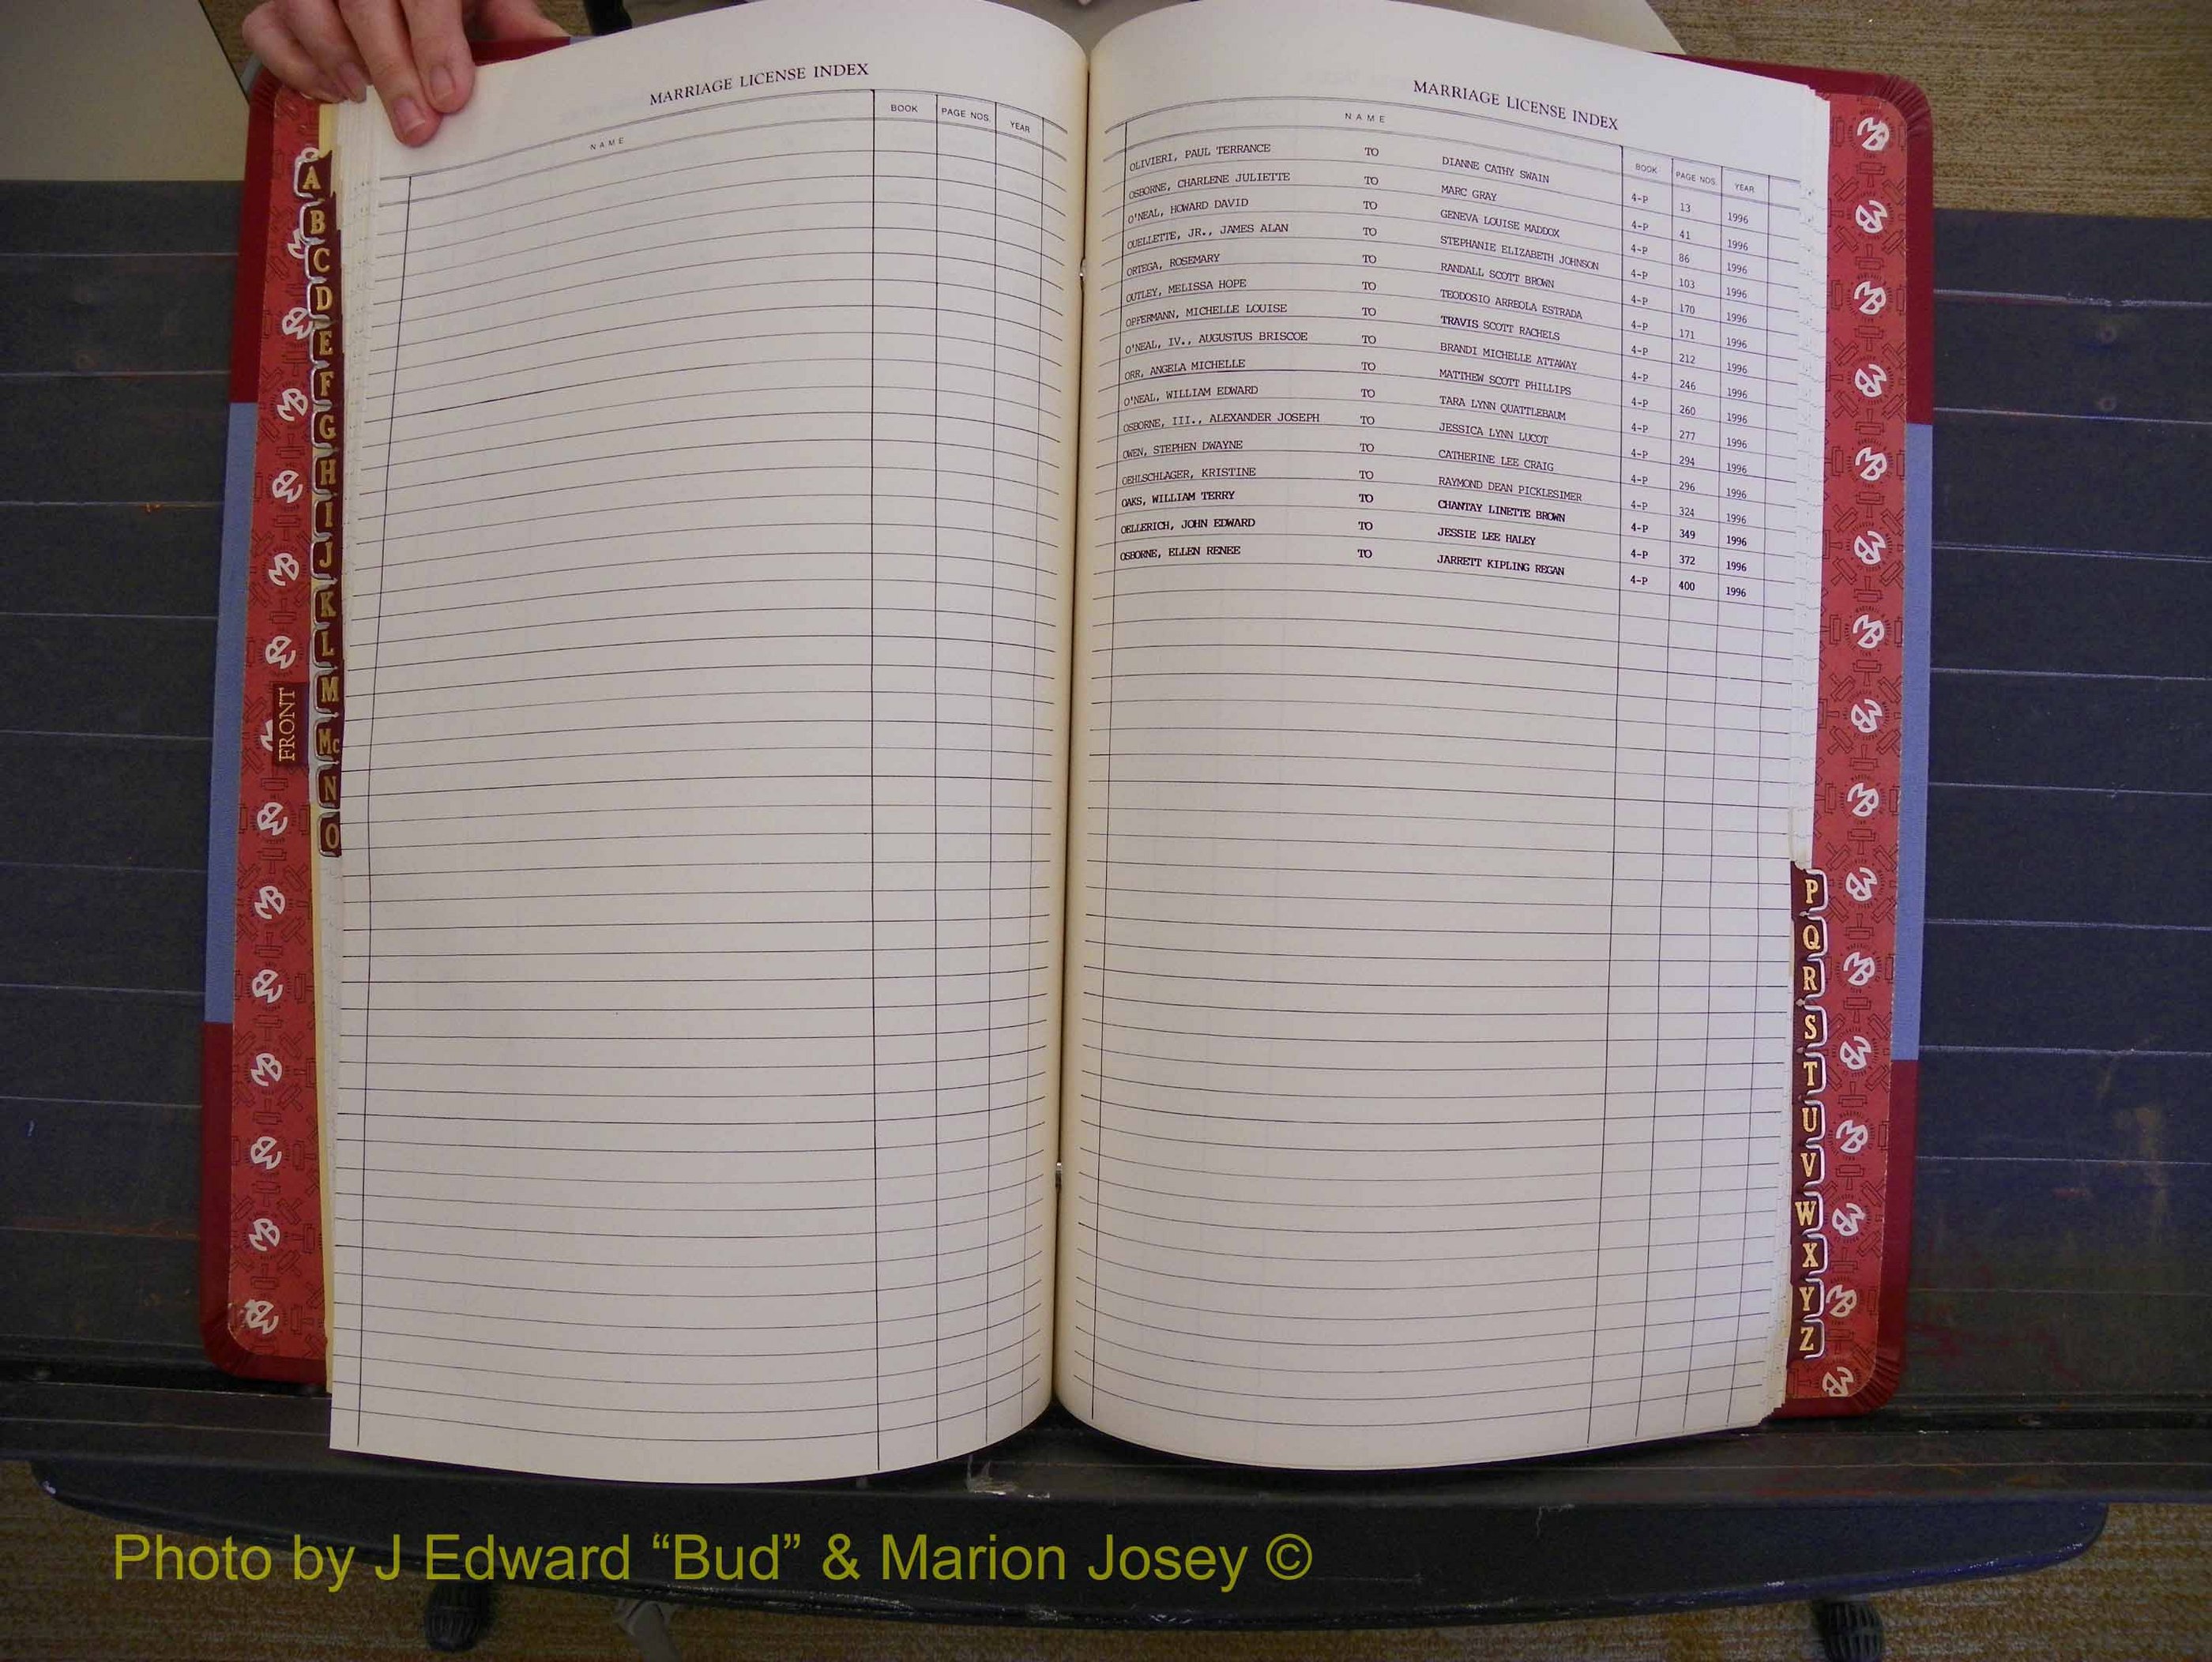 MARRIAGE LICENSE INDEX
NAME BOOK PAGE NOS. YEAR
MARRIAGE LICENSE INDEX
NAME BOOK PAGE NOS. YEAR
OLIVIERI, PAUL TERRANCE TO DIANNE CATHY SWAIN 4-P 13 1996
OSBORNE, CHARLENE JULIETTE TO MARC GRAY 4-P 41 1996
O'NEAL, HOWARD DAVID TO GENEVA LOUISE MADDOX 4-P 86 1996
OUELLETTE, JR., JAMES ALAN TO STEPHANIE ELIZABETH JOHNSON 4-P 103 1996
ORTEGA, ROSEMARY TO RANDALL SCOTT BROWN 4-P 170 1996
OUTLEY, MELISSA HOPE TO TEODOSIO ARREOLA ESTRADA 4-P 171 1996
OPFERMANN, MICHELLE LOUISE TO TRAVIS SCOTT RACHELS 4-P 212 1996
O'NEAL, IV., AUGUSTUS BRISCOE TO BRANDI MICHELLE ATTAWAY 4-P 246 1996
ORR, ANGELA MICHELLE TO MATTHEW SCOTT PHILLIPS 4-P 260 1996
O'NEAL, WILLIAM EDWARD TO TARA LYNN QUATTLEBAUM 4-P 277 1996
OSBORNE, III., ALEXANDER JOSEPH TO JESSICA LYNN LUCOT 4-P 294 1996
OWEN, STEPHEN DWAYNE TO CATHERINE LEE CRAIG 4-P 296 1996
OEHLSCHLAGER, KRISTINE TO RAYMOND DEAN PICKLESIMER 4-P 324 1996
OAKS, WILLIAM TERRY TO CHANTAY LINETTE BROWN 4-P 349 1996
OELLERICH, JOHN EDWARD TO JESSIE LEE HALEY 4-P 372 1996
OSBORNE, ELLEN RENEE TO JARRETT KIPLING REGAN 4-P 400 1996
A
B
C
D
E
F
G
H
I
J
K
L
M
Mc
N
O
FRONT
P
Q
R
S
T
U
V
W
X
Y
Z
Photo by J Edward “Bud” & Marion Josey ©